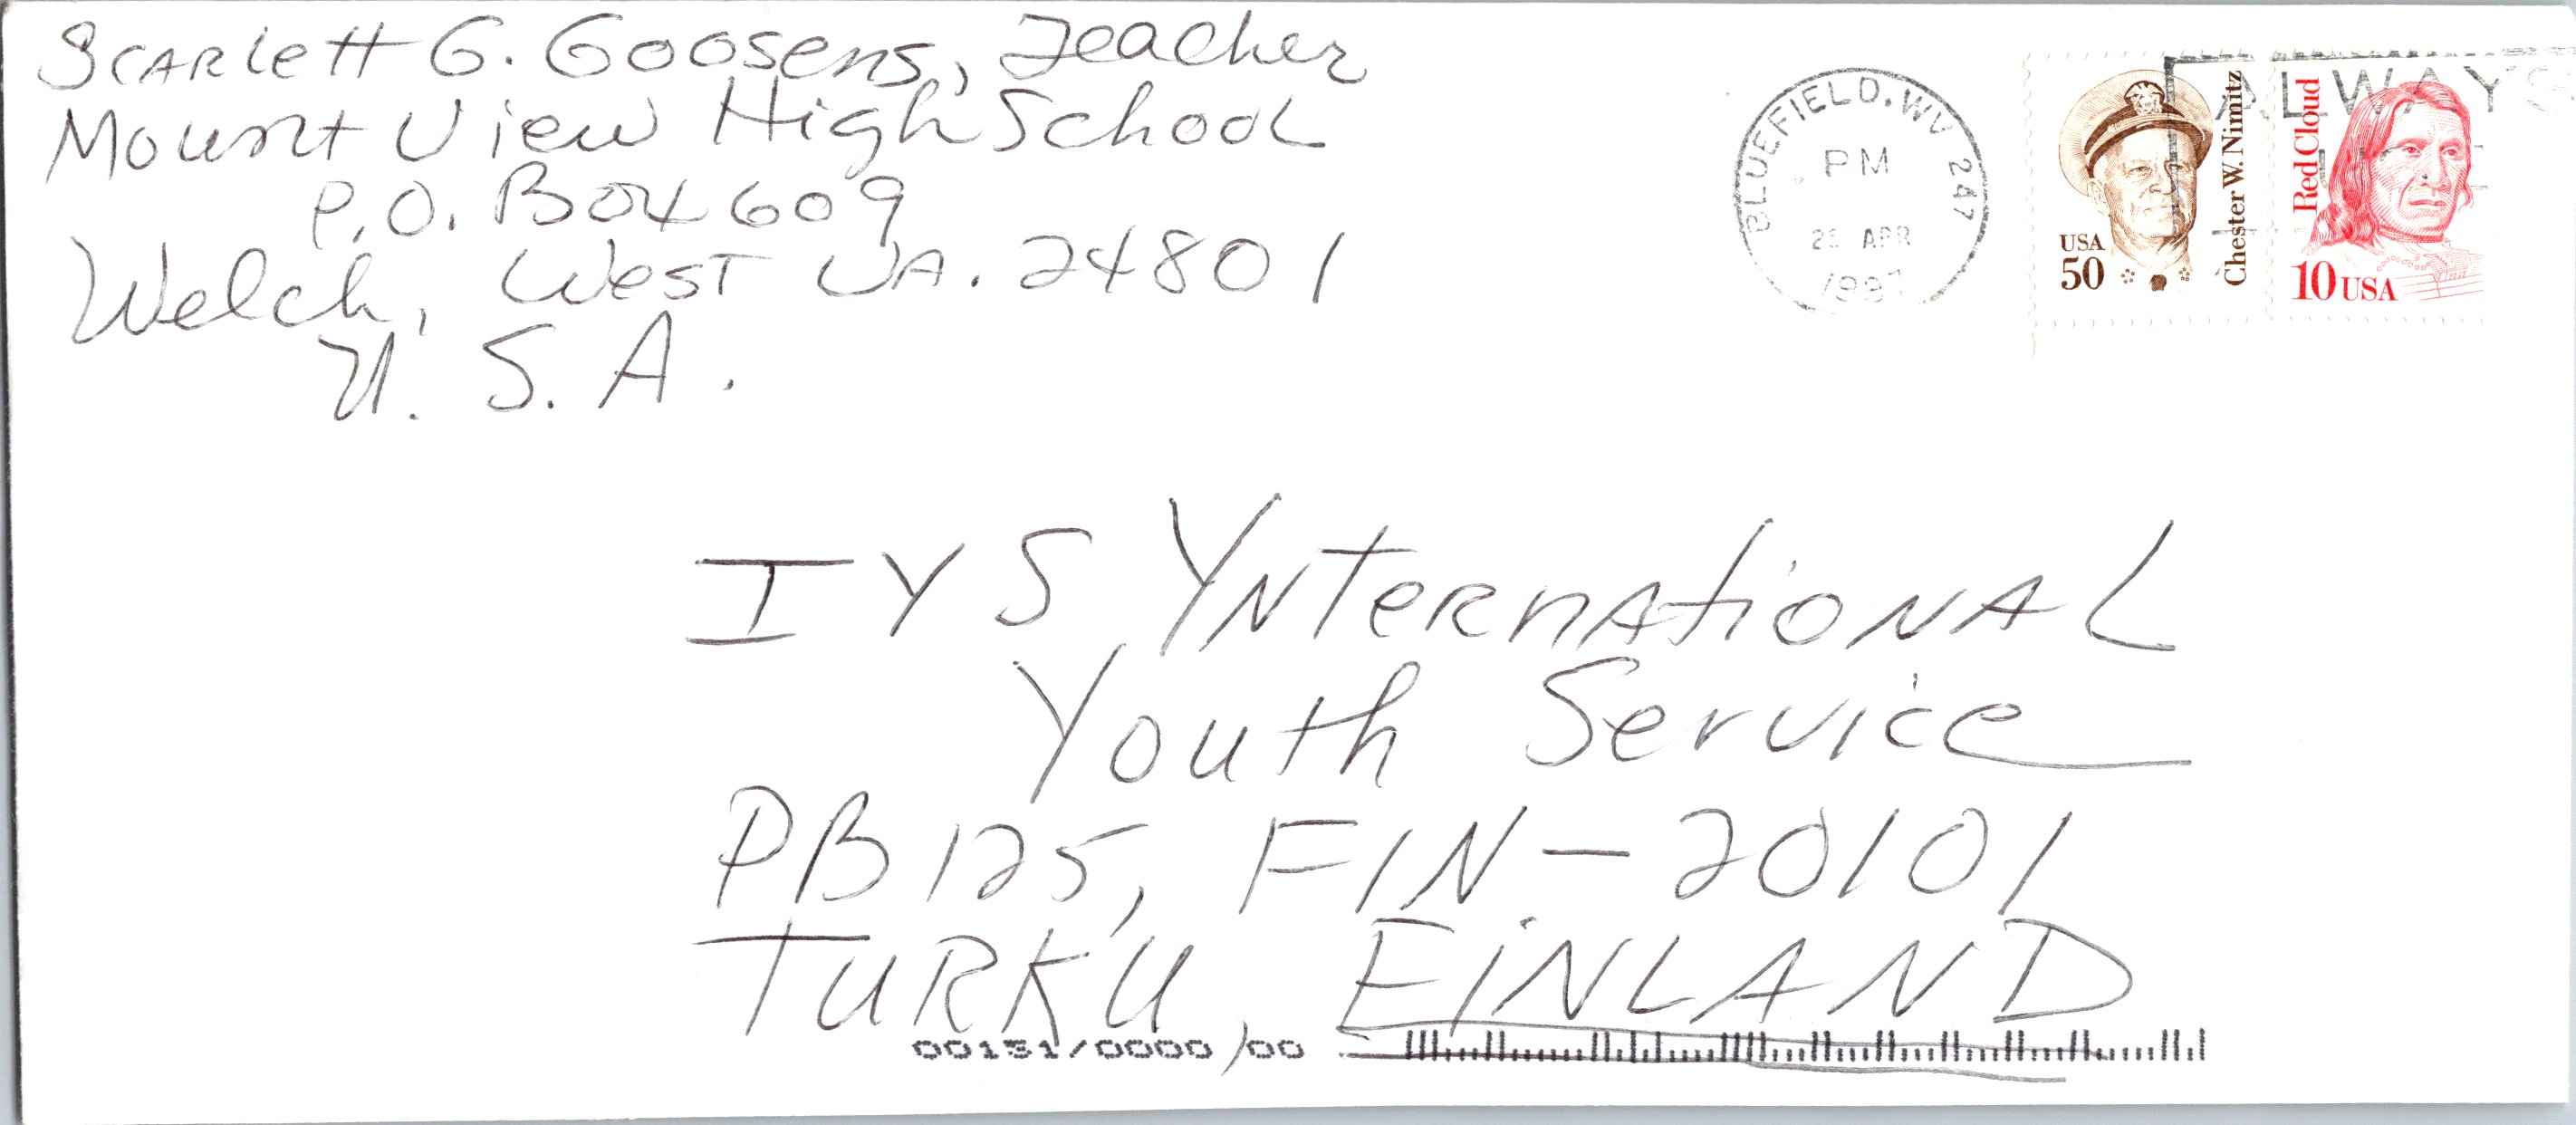 Scarlett G. Goosens, Teacher
Mount View High School
P.O. Box 609
Welch, West VA. 24801
U. S. A.
BLUEFIELD, WV 247
PM
APR
ALWAYS
USA
50
Chester W. Nimitz
Red Cloud
10 USA
IYS YNternational
Youth Service
PB 125, FIN-20101
TURKU, FINLAND
00131/0000/00